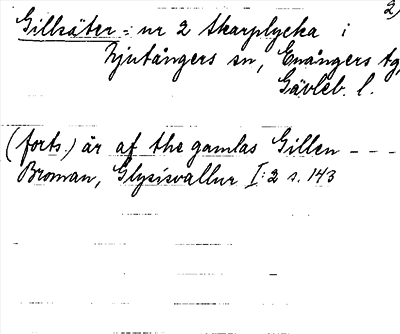 2)
Gillsäter = nr 2 Skarplycka i
Njutångers sn, Enångers tg,
Gävleb. l.
(forts.) är af the gamlas Gillen - - -
Broman, Glysisvallur I:2 s. 143